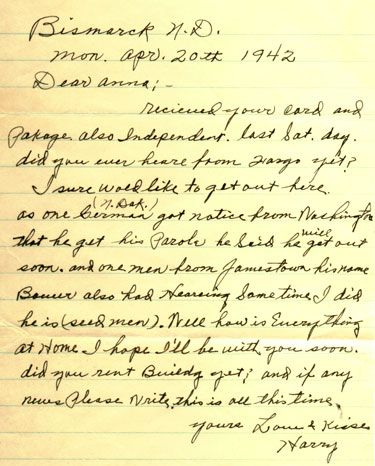 Bismarck N.D.
Mon. Apr. 20th 1942
Dear Anna;-
recieved your card and
Pakage also Independent. last Sat. day.
did you ever heare from Fargo yet?
I sure woed like to get out here
(N. Dak.)
as one German got notice from Washington
that he get his Parole he Seid he will get out
soon. and one men from Jamestown his name
Bauer also had Hearing Same time I did
he is (seed men). Well how is Everything
at Home. I hope I'll be with you soon.
did you rent Buildg yet; and if any
news Please Write. this is all this time.
yours Love & Kisses
Harry